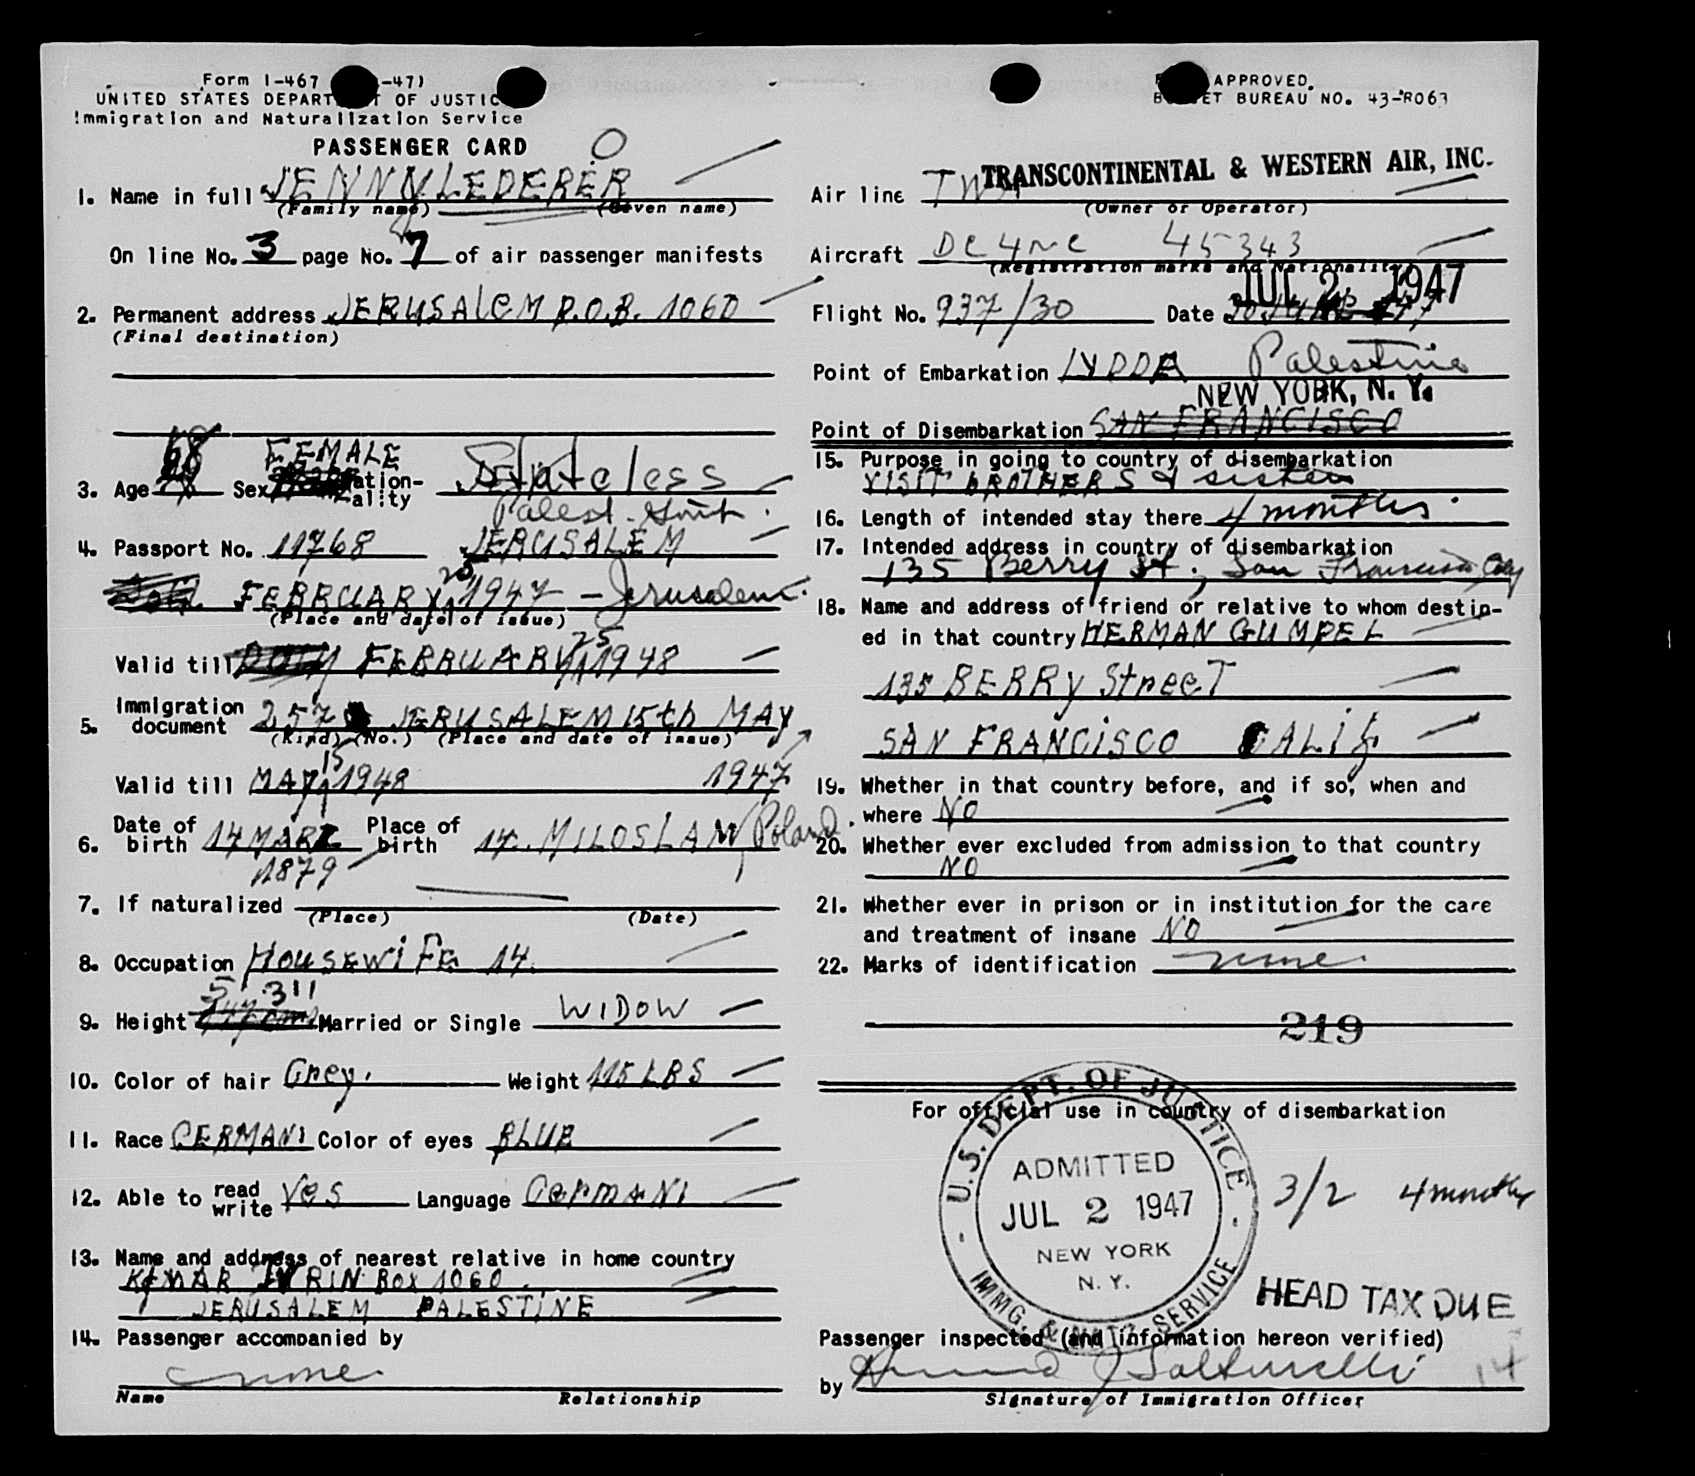 Form I-467 -47)
UNITED STATES DEPARTMENT OF JUSTICE
Immigration and Naturalization Service
PASSENGER CARD
1. Name in full JENNY LEDERER
(Family name) (Given name)
On line No. 3 page No. 7 of air passenger manifests
2. Permanent address JERUSALEM P.O.B. 1060
(Final destination)
68 FEMALE
3. Age Sex Nation-ality Stateless
Palest. Govt.
4. Passport No. 11768 JERUSALEM
FEBRUARY 25 1947 - Jerusalem.
(Place and date of issue)
Valid till FEBRUARY 25 1948
5. Immigration document 257 JERUSALEM 15th MAY
(Kind) (No.) (Place and date of issue)
Valid till MAY 15 1948 1947
6. Date of birth 14 MARZ Place of birth 14. MILOSLAW, Poland.
1879
7. If naturalized
(Place) (Date)
8. Occupation HOUSEWIFE 14.
9. Height 5' 3" Married or Single WIDOW
10. Color of hair Grey. Weight 115 LBS
11. Race GERMANI Color of eyes BLUE
12. Able to read write YES Language GERMANI
13. Name and address of nearest relative in home country
BOX 1060
JERUSALEM PALESTINE
14. Passenger accompanied by
none
Name Relationship
FORM APPROVED.
BUDGET BUREAU NO. 43-R063
TRANSCONTINENTAL & WESTERN AIR, INC.
Air line TWA
(Owner or Operator)
Aircraft DC4 NC 45343
(Registration marks and Nationality)
JUL 2 1947
Flight No. 937/30 Date
Point of Embarkation LYDDA Palestine
NEW YORK, N. Y.
Point of Disembarkation SAN FRANCISCO
15. Purpose in going to country of disembarkation
VISIT BROTHERS & sister
16. Length of intended stay there 4 months.
17. Intended address in country of disembarkation
135 Berry St., San Francisco, Cal
18. Name and address of friend or relative to whom destin-
ed in that country HERMAN GUMPEL
135 BERRY StreeT
SAN FRANCISCO CALIF
19. Whether in that country before, and if so, when and
where NO
20. Whether ever excluded from admission to that country
NO
21. Whether ever in prison or in institution for the care
and treatment of insane NO
22. Marks of identification none.
219
For official use in country of disembarkation
U.S. DEPT. OF JUSTICE
ADMITTED
JUL 2 1947
NEW YORK
N. Y.
IMMG. & NATZ. SERVICE
3/2 4 months
HEAD TAX DUE
Passenger inspected (and information hereon verified)
by
14
Signature of Immigration Officer